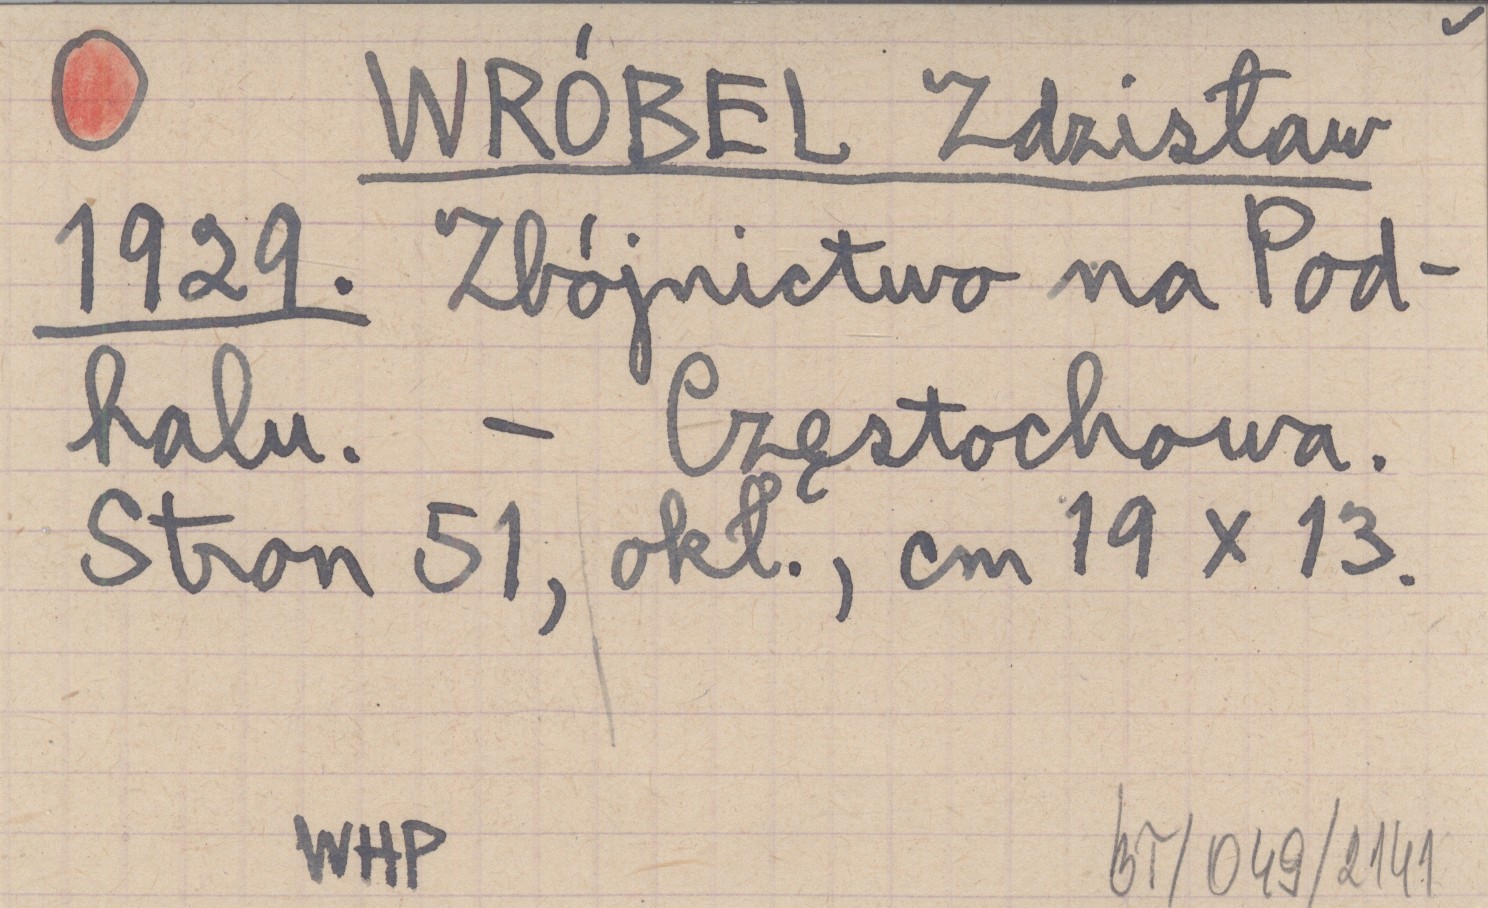 WRÓBEL Zdzisław
1929. Zbójnictwo na Pod-
halu. - Częstochowa.
Stron 51, okł., cm 19 x 13.
WHP
BT/049/2141